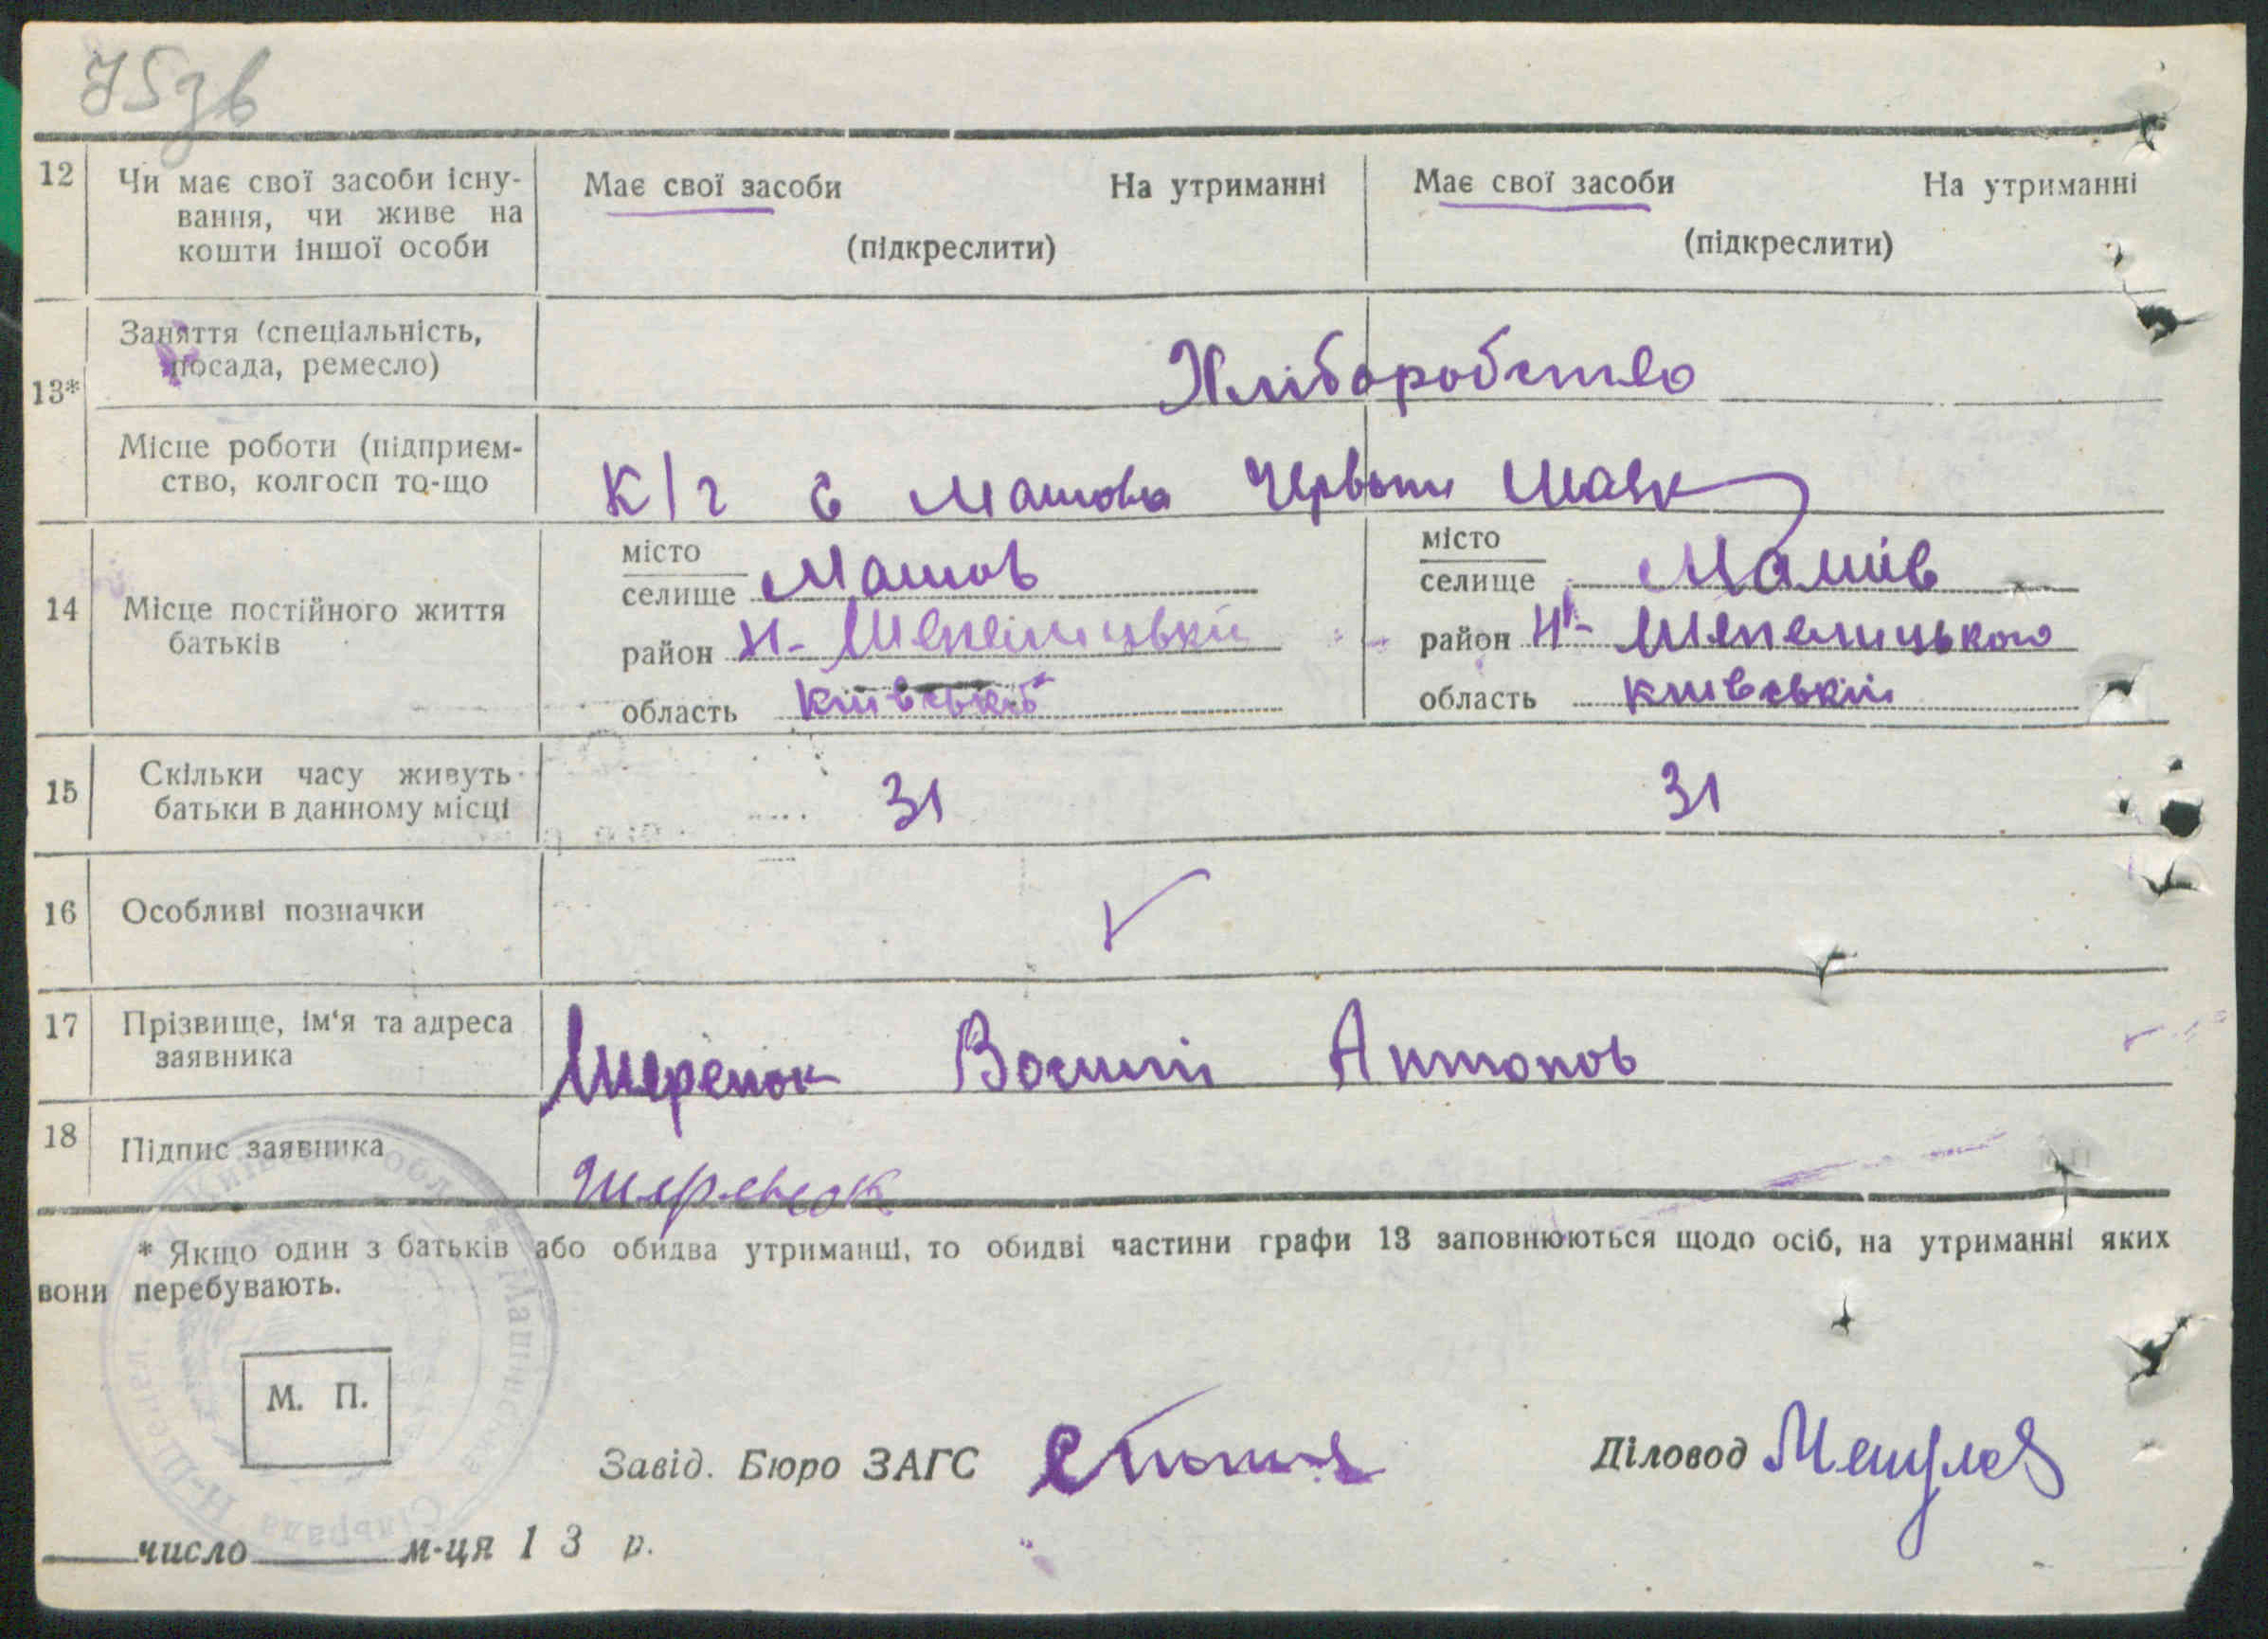 75зв
12 Чи має свої засоби існу- Має свої засоби На утриманні Має свої засоби На утриманні
вання, чи живе на
кошти іншої особи (підкреслити) (підкреслити)
Заняття (спеціальність,
посада, ремесло) Хліборобство
13*
Місце роботи (підприєм-
ство, колгосп то-що К/г с Машова Червони Маяк
14 Місце постійного життя
батьків
місто
селище Машов
район Н-Шепелицький
область Київській
місто
селище Машів
район Н-Шепелицького
область Київській
15 Скільки часу живуть
батьки в данному місці 31 31
16 Особливі позначки
17 Прізвище, ім'я та адреса
заявника Шеренок Восилій Антонов
18 Підпис заявника Шеренок
* Якщо один з батьків або обидва утриманці, то обидві частини графи 13 заповнюються щодо осіб, на утриманні яких
вони перебувають.
М. П.
Завід. Бюро ЗАГС Діловод
число м-ця 1 3 р.
Київська обл. Машівська Сільрада Н-Шепел.